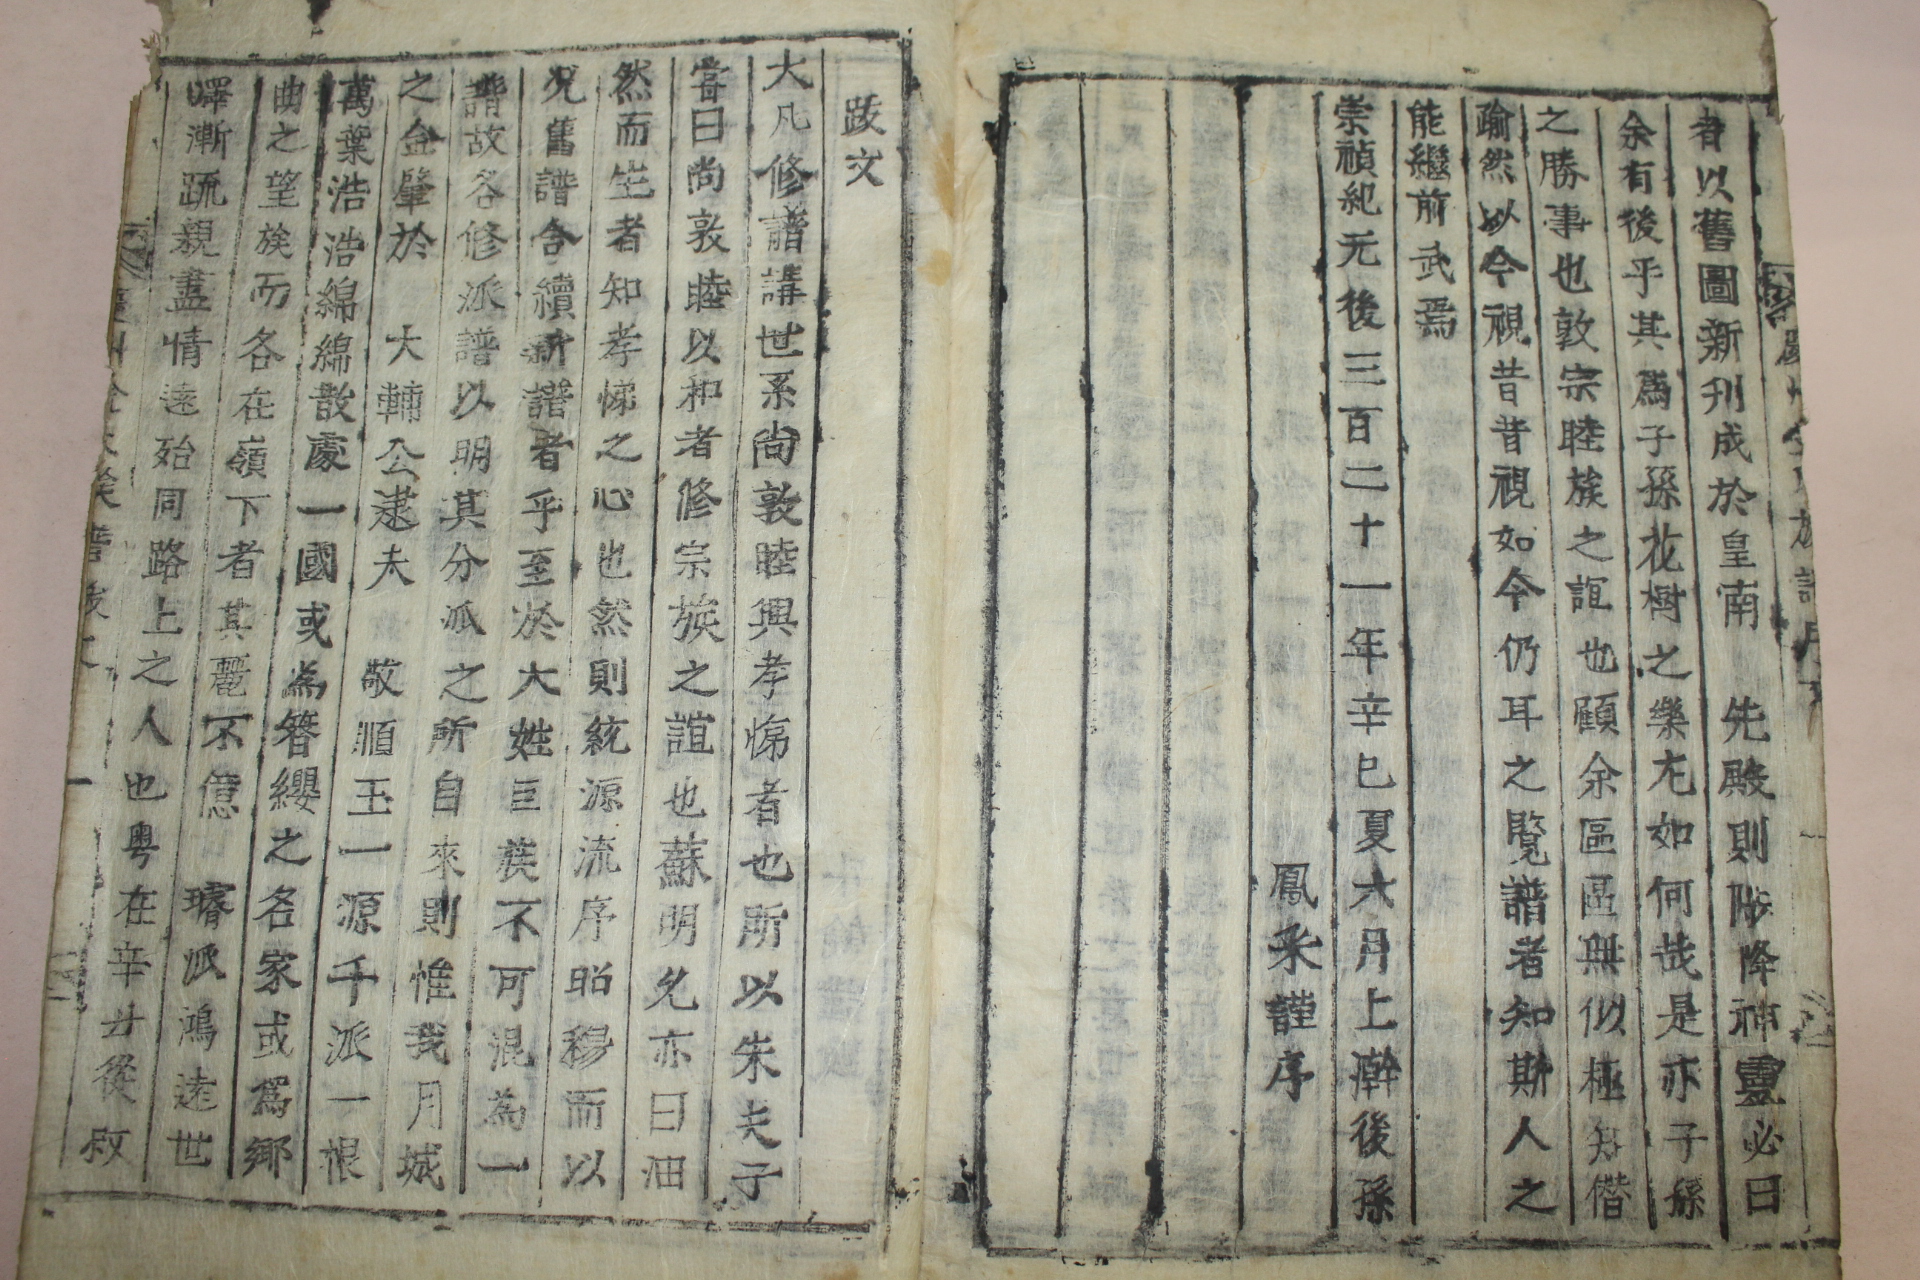 者以舊圖新刊成於皇南 先殿則陟降神靈必曰
余有後乎其爲子孫花樹之樂尤如何哉是亦子孫
之勝事也敦宗睦族之誼也顧余區區無似極知僭
踰然以今視昔昔視如今仍耳之覽譜者知斯人之
能繼前武焉
崇禎紀元後三百二十一年辛巳夏六月上澣後孫
鳳采謹序
跋文
大凡修譜講世系尚敦睦興孝悌者也所以朱夫子
嘗曰尚敦睦以和者修宗族之誼也蘇明允亦曰油
然而生者知孝悌之心也然則統源流序昭穆而以
况舊譜合續新譜者乎至於大姓巨族不可混為一
譜故各修派譜以明其分派之所自來則惟我月城
之金肇於 大輔公逮夫 敬順王一源千派一根
萬葉浩浩綿綿散處一國或為簪纓之名家或爲鄉
曲之望族而各在嶺下者其麗不億 璿派鴻遠世
嘽漸疏親盡情遠始同路上之人也粤在辛廿從叔